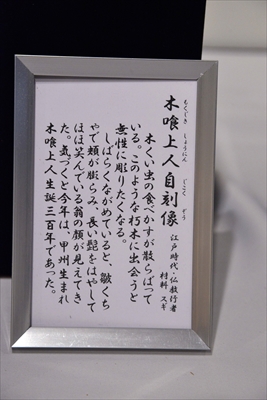 もくじき しょうにん じこく ぞう
木喰上人自刻像
江戸時代・仏教行者
材料 スギ
木くい虫の食べかすが散らばって
いる。このような朽木に出会うと
無性に彫りたくなる。
しばらくながめていると、皺くち
やで頬が膨らみ、長い髭をはやして
ほほ笑んでいる翁の顔が見えてき
た。気づくと今年は、甲州生まれ
木喰上人生誕三百年であった。